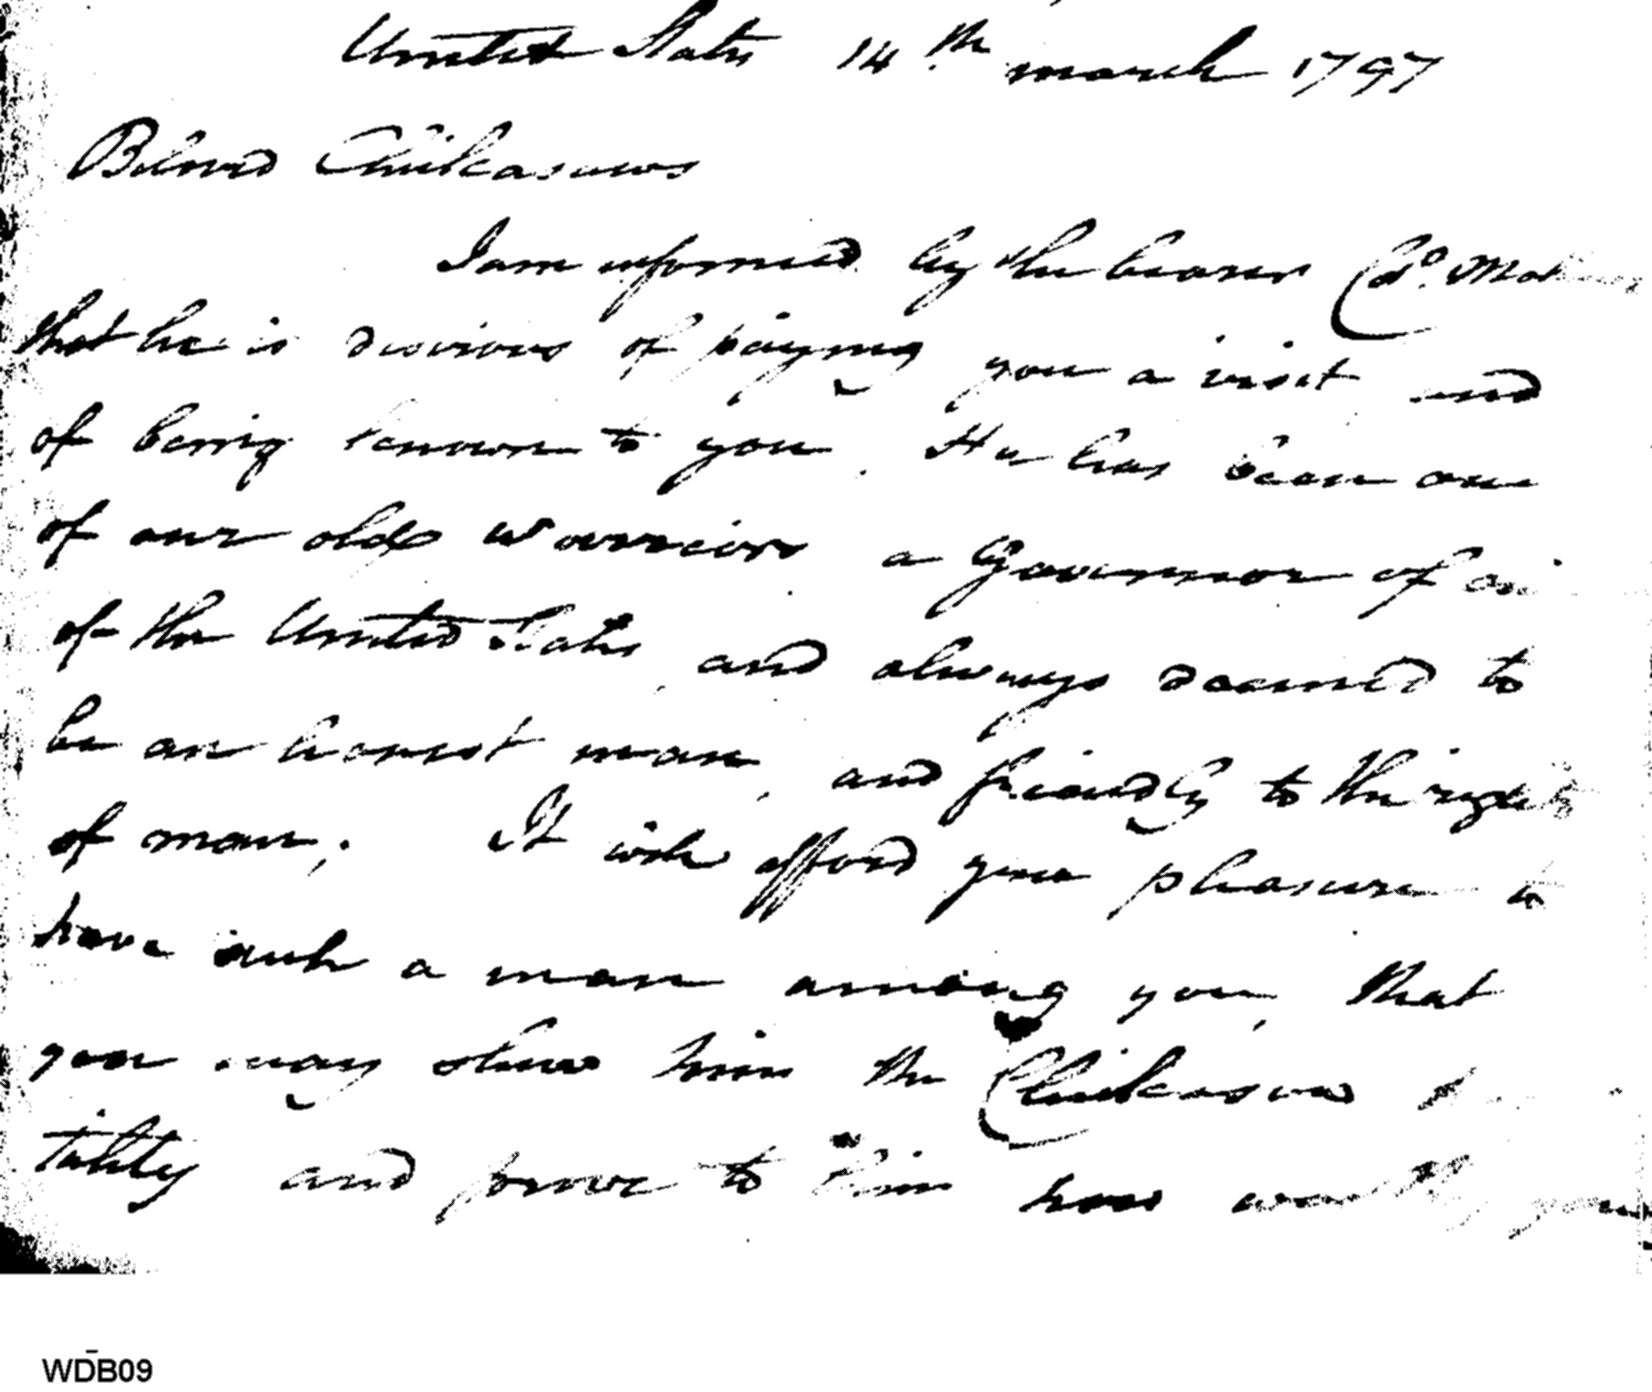 United States 14th march 1797
Beloved Chickasaws
I am informed by the bearer Colo. Mat
that he is desirous of paying you a visit and
of being known to you. He has been one
of our old warriors a Governor of
of the United States, and always deemed to
be an honest man, and friendly to the rights
of man; It will afford you pleasure to
have such a man among you, that
you may shew him the Chickasaw
tality and prove to him how worthy you
WDB09